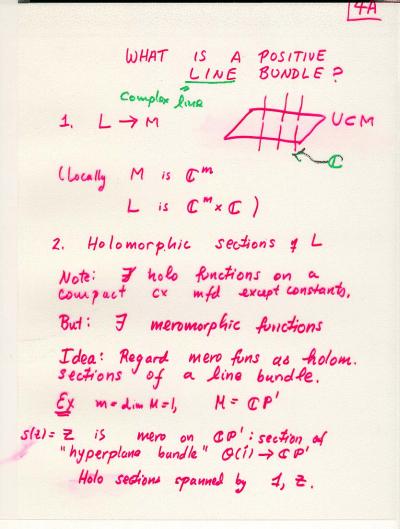 4A
WHAT IS A POSITIVE
LINE BUNDLE?
complex line
1. L → M
U⊂M
ℂ
(Locally M is ℂᵐ
L is ℂᵐ × ℂ )
2. Holomorphic sections of L
Note: ∄ holo functions on a
compact cx mfd except constants.
But: ∃ meromorphic functions
Idea: Regard mero funs as holom.
sections of a line bundle.
Ex m = dim M = 1, M = ℂP¹
s(z) = z is mero on ℂP¹: section of
"hyperplane bundle" O(1) → ℂP¹
Holo sections spanned by 1, z.